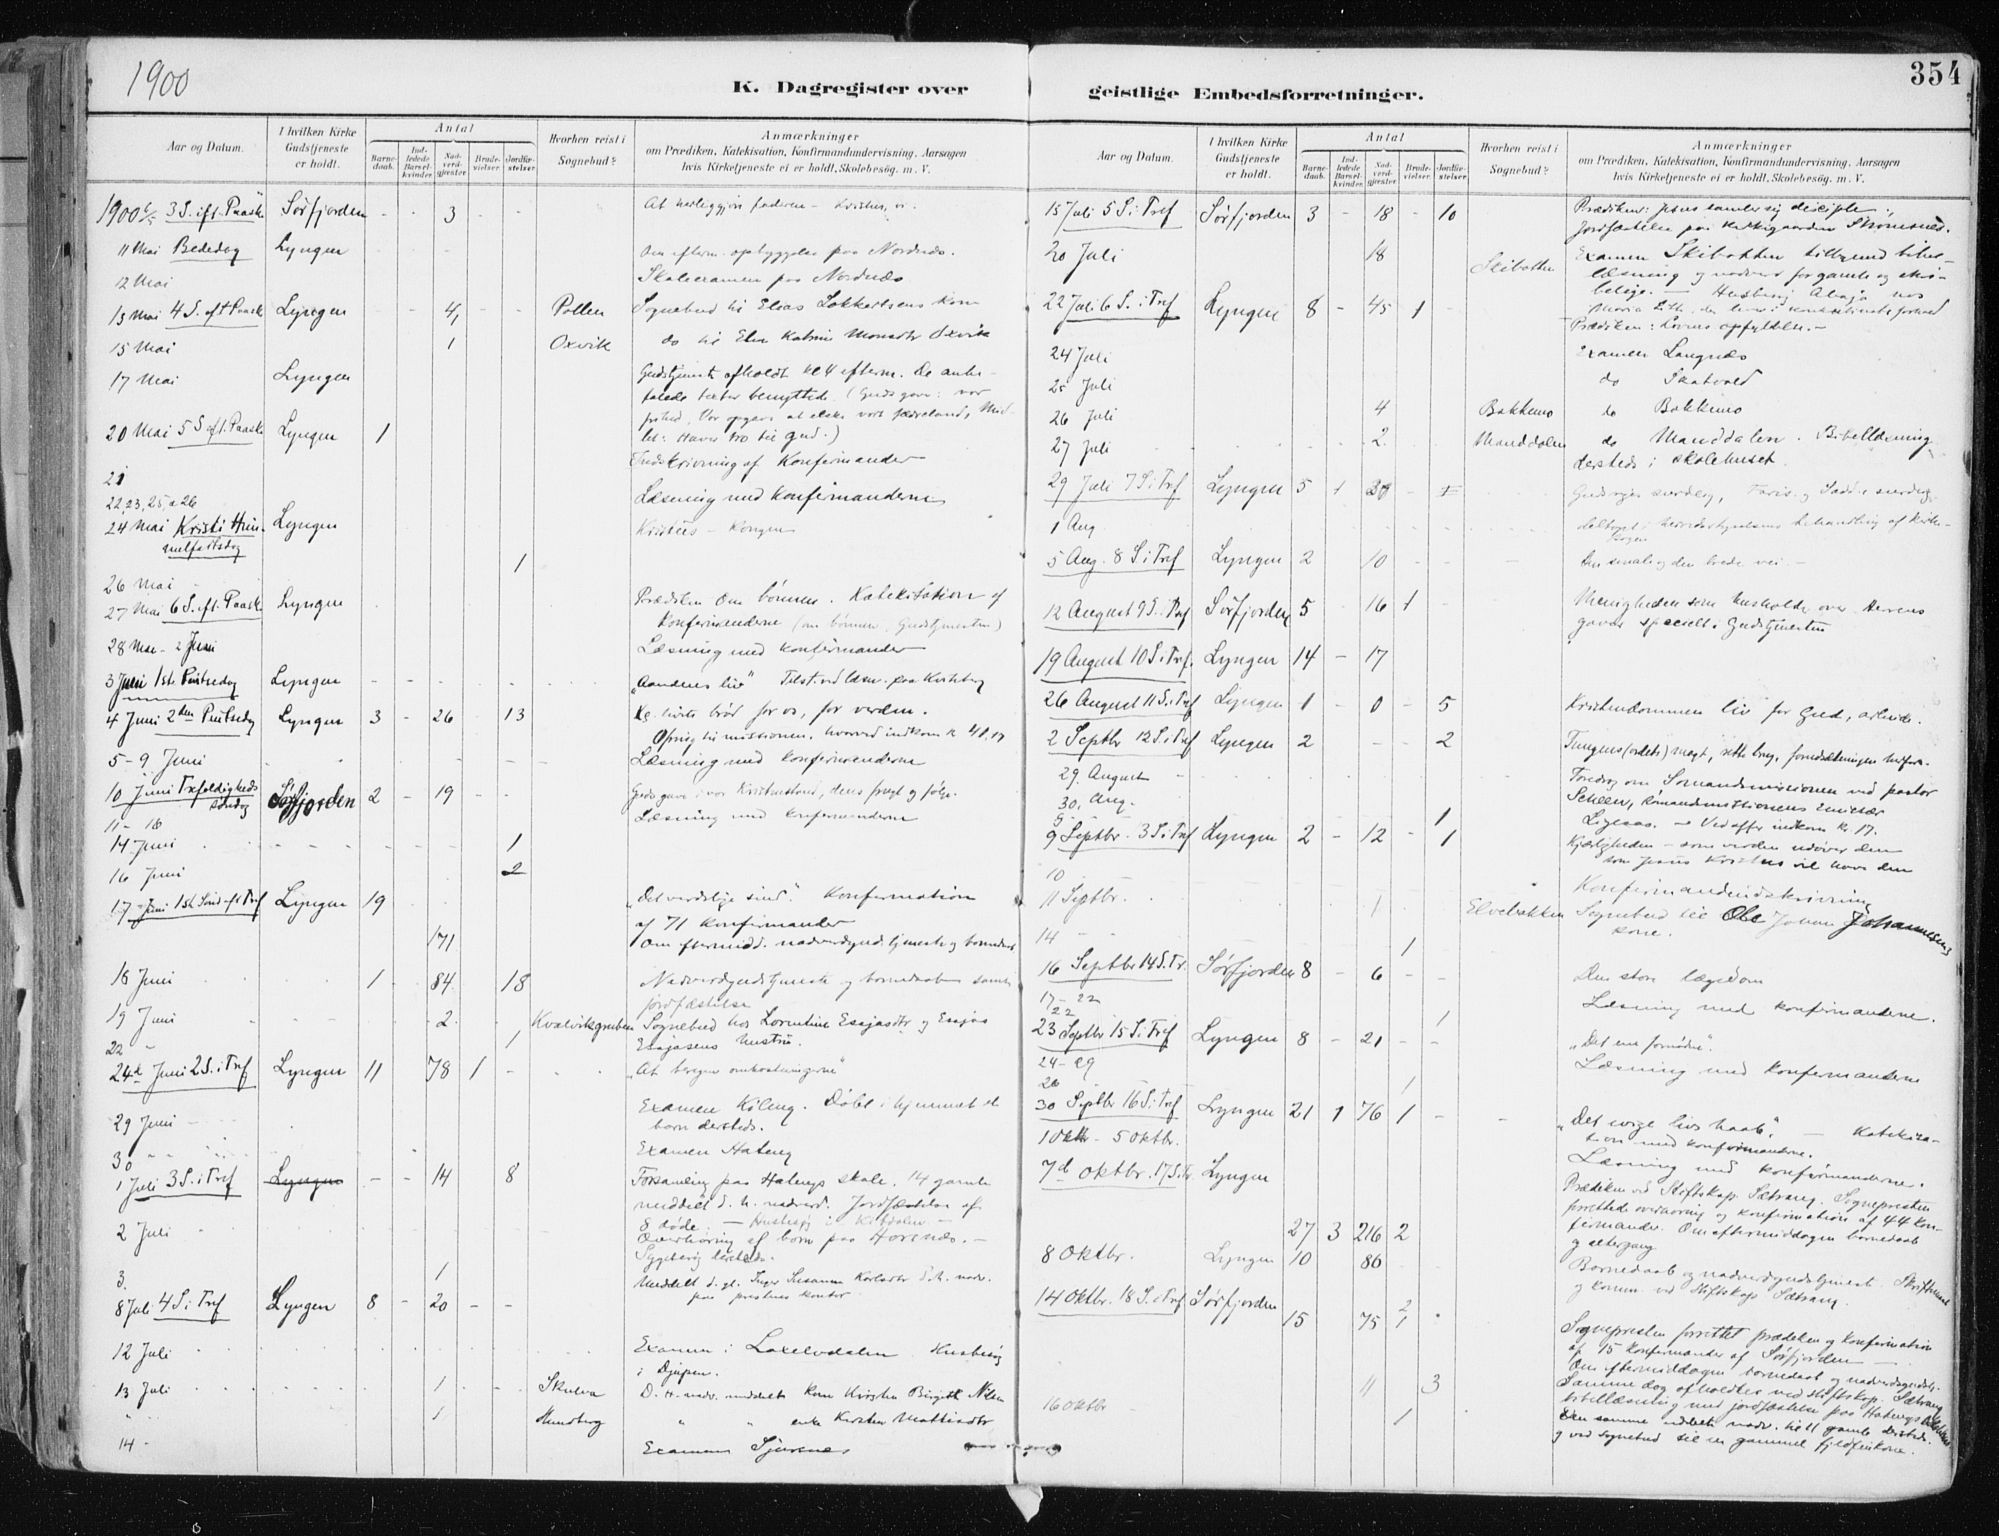 1900
354
K. Dagregister over geistlige Embedsforretninger.
Aar og Datum.
I hvilken Kirke Gudstjeneste er holdt.
Antal
Barnedaab.
Indledede Barselkvinder.
Nadverdgjester
Brudevielser
Jordfæstelser
Hvorhen reist i Sognebud?
Anmærkninger
om Prædiken, Katekisation, Konfirmandundervisning, Aarsagen
hvis Kirketjeneste ei er holdt, Skolebesøg. m. V.
1900 6/5 3 S. eft. Paaske Sørfjorden - - 3 - -
11 Mai Bededag Lyngen Om efterm. opbyggelse paa Nordnæs.
12 Mai Skoleexamen paa Nordnæs
13 Mai 4 S. eft Paaske Lyngen 4 Pollen Sognebud til Elias Lokkertsens kone
15 Mai 1 Oxvik do til Elen Katrine Monsdtr Oxvik
17 Mai Lyngen Gudstjeneste afholdt kl 4 efterm. De anbe-
falede texter benyttede. (Guds gave: vor
frihed, Vor opgave at elske vort fædreland, Mid-
let: Have tro til Gud.)
20 Mai 5 S. eft. Paaske Lyngen 1
21 Indskrivning af Konfirmander
22, 23, 25, a 26 Læsning med konfirmanderne
24 Mai Kristi Him-
melfartsdag Lyngen Kristus - Kongen
26 Mai 1
27 Mai 6 S. eft. Paaske Lyngen Prædiken om bønnen. Katekisation af
Konfirmanderne (om bønnen, Gudstjenesten)
28 Mai - 2 Juni Læsning med konfirmander
3 Juni 1ste Pintsedag Lyngen "Aandens liv"
4 Juni 2den Pintsedag Lyngen 3 - 26 13 Kr. livets brød for os, for verden.
Offring til missionen, hvorved indkom kr 40,17
5 - 9 Juni Læsning med konfirmanderne
10 Juni Trefoldigheds
søndag Sørfjorden 2 - 19 Guds gave i vor Kristenstand, dens frugt og følge.
11 - 16 Læsning med konfirmanderne
14 Juni 1
16 Juni 2
17 Juni 1ste Sønd. eft Tref Lyngen 19 "Det verdslige sind". Konfirmation
af 71 konfirmander
171 Om eftermidd. nadverdgudstjeneste og barnedaab
18 Juni 1 84 18 Nadverdgudstjeneste og barnedaab samt
jordfæstelse
19 Juni 2 Kvalvikgruben Sognebud hos Lorentine Essjasdtr og Essjas
Essjasens hustru.
22 " 1
24de Juni 2 S. i Tref Lyngen 11 78 1 "At beregne omkostningerne"
29 Juni Examen Kileng. Døbt i hjemmet et
barn dersteds.
30 " Examen Hateng
1 Juli 3 S. i Tref Lyngen - - 14 8 Forsamling paa Hatengs skole. 14 gamle
meddelt d. h. nadverd. Jordfæstelse af
8 døde. - Husbesøg i Kitdalen -
2 Juli Overhøring af børn paa Horsnæs. -
Sygebesøg dersteds.
3. 1 Meddelt d. gl. Inger Susanna Karlsdtr d. h. nadv.
paa prestens kontor
8 Juli 4 S. i Tref Lyngen 8 - 20 - -
12 Juli Examen i Laxelvdalen. Husbesøg
i Djupen.
13 Juli 1 Skulva D. H. nadv. meddelt kone Kirsten Birgitte Nilsen
" 1 Hundberg " " enke Kirsten Mattisdtr
14 - Examen Sjursnes
Aar og Datum.
I hvilken Kirke Gudstjeneste er holdt.
Antal
Barnedaab.
Indledede Barselkvinder
Nadverdgjester
Brudevielser
Jordfæstelser
Hvorhen reist i Sognebud?
Anmærkninger
om Prædiken, Katekisation, Konfirmandundervisning, Aarsagen
hvis Kirketjeneste ei er holdt, Skolebesøg. m. V.
15 Juli 5 S. i Tref Sørfjorden 3 - 18 - 10 Prædiken: Jesus samler sig disciple.
Jordfæstelse paa Kirkegaarden Strømsnes.
20 Juli 18 Skibotten Examen Skibotten tilligemed bibel-
læsning og nadver for gamle og skrø-
belige. - Husbesøg
22 Juli 6 S. i Tref Lyngen 8 - 45 1 -
Prædiken: Lovens opfyldelse. -
24 Juli Examen Langnæs
25 Juli do Skatvold
26 Juli 4 Bakkemo do Bakkemo
27 Juli 2 Manddalen do Manddalen. Bibellæsning
dersteds i skolehuset.
29 Juli 7 S. i Tref Lyngen 5 1 39 - 1
1 Aug
5 Aug. 8 S. i Tref Lyngen 2 10 Den smale og den brede vei -
12 August 9 S. i Tref Sørfjorden 5 - 16 1 Menigheden som husholder over Herrens
gaver specielt i Gudstjenesten
19 August 10 S. i Tref. Lyngen 14 - 17
26 August 11 S. i Tref Lyngen 1 - 0 - 5 Kristendommen liv for Gud, arbeide.
2 Septbr 12 S. i Tref Lyngen 2 - - 2 Tungens (ordets) magt, rette brug,
29. August Foredrag om Sømandsmissionen ved pastor
30. Aug. Scheen, sømandsmissionens emissær
1 - Ved offer indkom kr. 17.
9 Septbr. 3 S. i Tref Lyngen 2 - 12 - 1 Kjærligheden - som verden udøver den
som Jesus Kristus vil have den
10 Konfirmandindskrivning
11 Septbr. 1 Elvebakken Sognebud til Ole Johan Johannesens
kone.
14 - 1
16 Septbr 14 S. Tr. Sørfjorden 8 - 6 - - Den store lægedom
17 - 22 Læsning med konfirmanderne.
22 1
23 Septbr 15 S. i Tref Lyngen 8 - 21 - - "Det ene fornødne".
24 - 29 Læsning med konfirmanderne
26 1
30 Septbr 16 S. i Tref Lyngen 21 1 76 1 - - "Det evige livs haab". - Katekisa-
tion med konfirmanderne.
1 Oktbr - 5 Oktbr. Læsning med konfirmanderne.
7de Oktbr. 17 S. Tr. Lyngen Prædiken ved Stiftskap. Sætrang. Sognepresten
forrettede overhøring og konfirmation af 44 kon-
firmander. Om eftermiddagen barnedaab
27 3 216 2 og altergang
8 Oktbr. Lyngen 10 86 Barnedaab og nadverdgudstjeneste. Skriftemaal
og komm. ved Stiftskap Sætrang.
14 Oktbr. 18 S. i Tref Sørfjorden 15 75 2 Sognepresten forrettet prædiken og konfirmation
af 15 konfirmander af Sørfjorden -
Om eftermiddagen barnedaab og nadverdgudstj.
11 3 Samme dag afholdtes ved Stiftskap. Sætrang
bibellæsning med jordfæstelse paa Hatengs
16 Oktbr - 1 samme meddelt nadv. til 11 gamle dersteds.
og ved sognebud til en gammel fjeldfinkone.